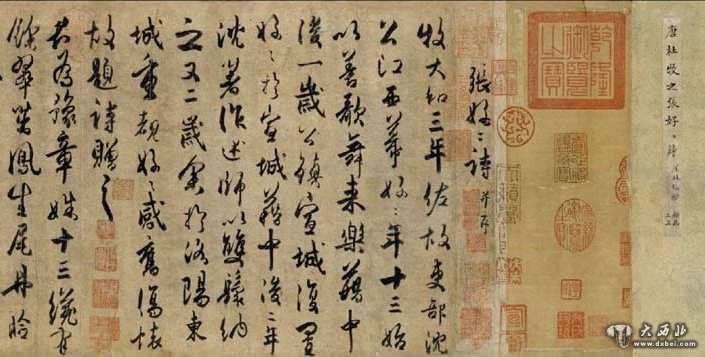 唐杜牧之張好〻詩
乾隆御覽之寶
張好〻詩 并序
牧大和三年佐故吏部沈
公江西幕好〻年十三始
以善歌舞來樂籍中
後一歲公鎮宣城復置
好〻於宣城籍中後二年
沈著作述師以雙鬟納
之又二歲余於洛陽東
城重覩好〻感舊傷懷
故題詩贈之
君為豫章姝十三纔有
餘翠茁鳳生尾丹臉
大西北
www.dxbei.com